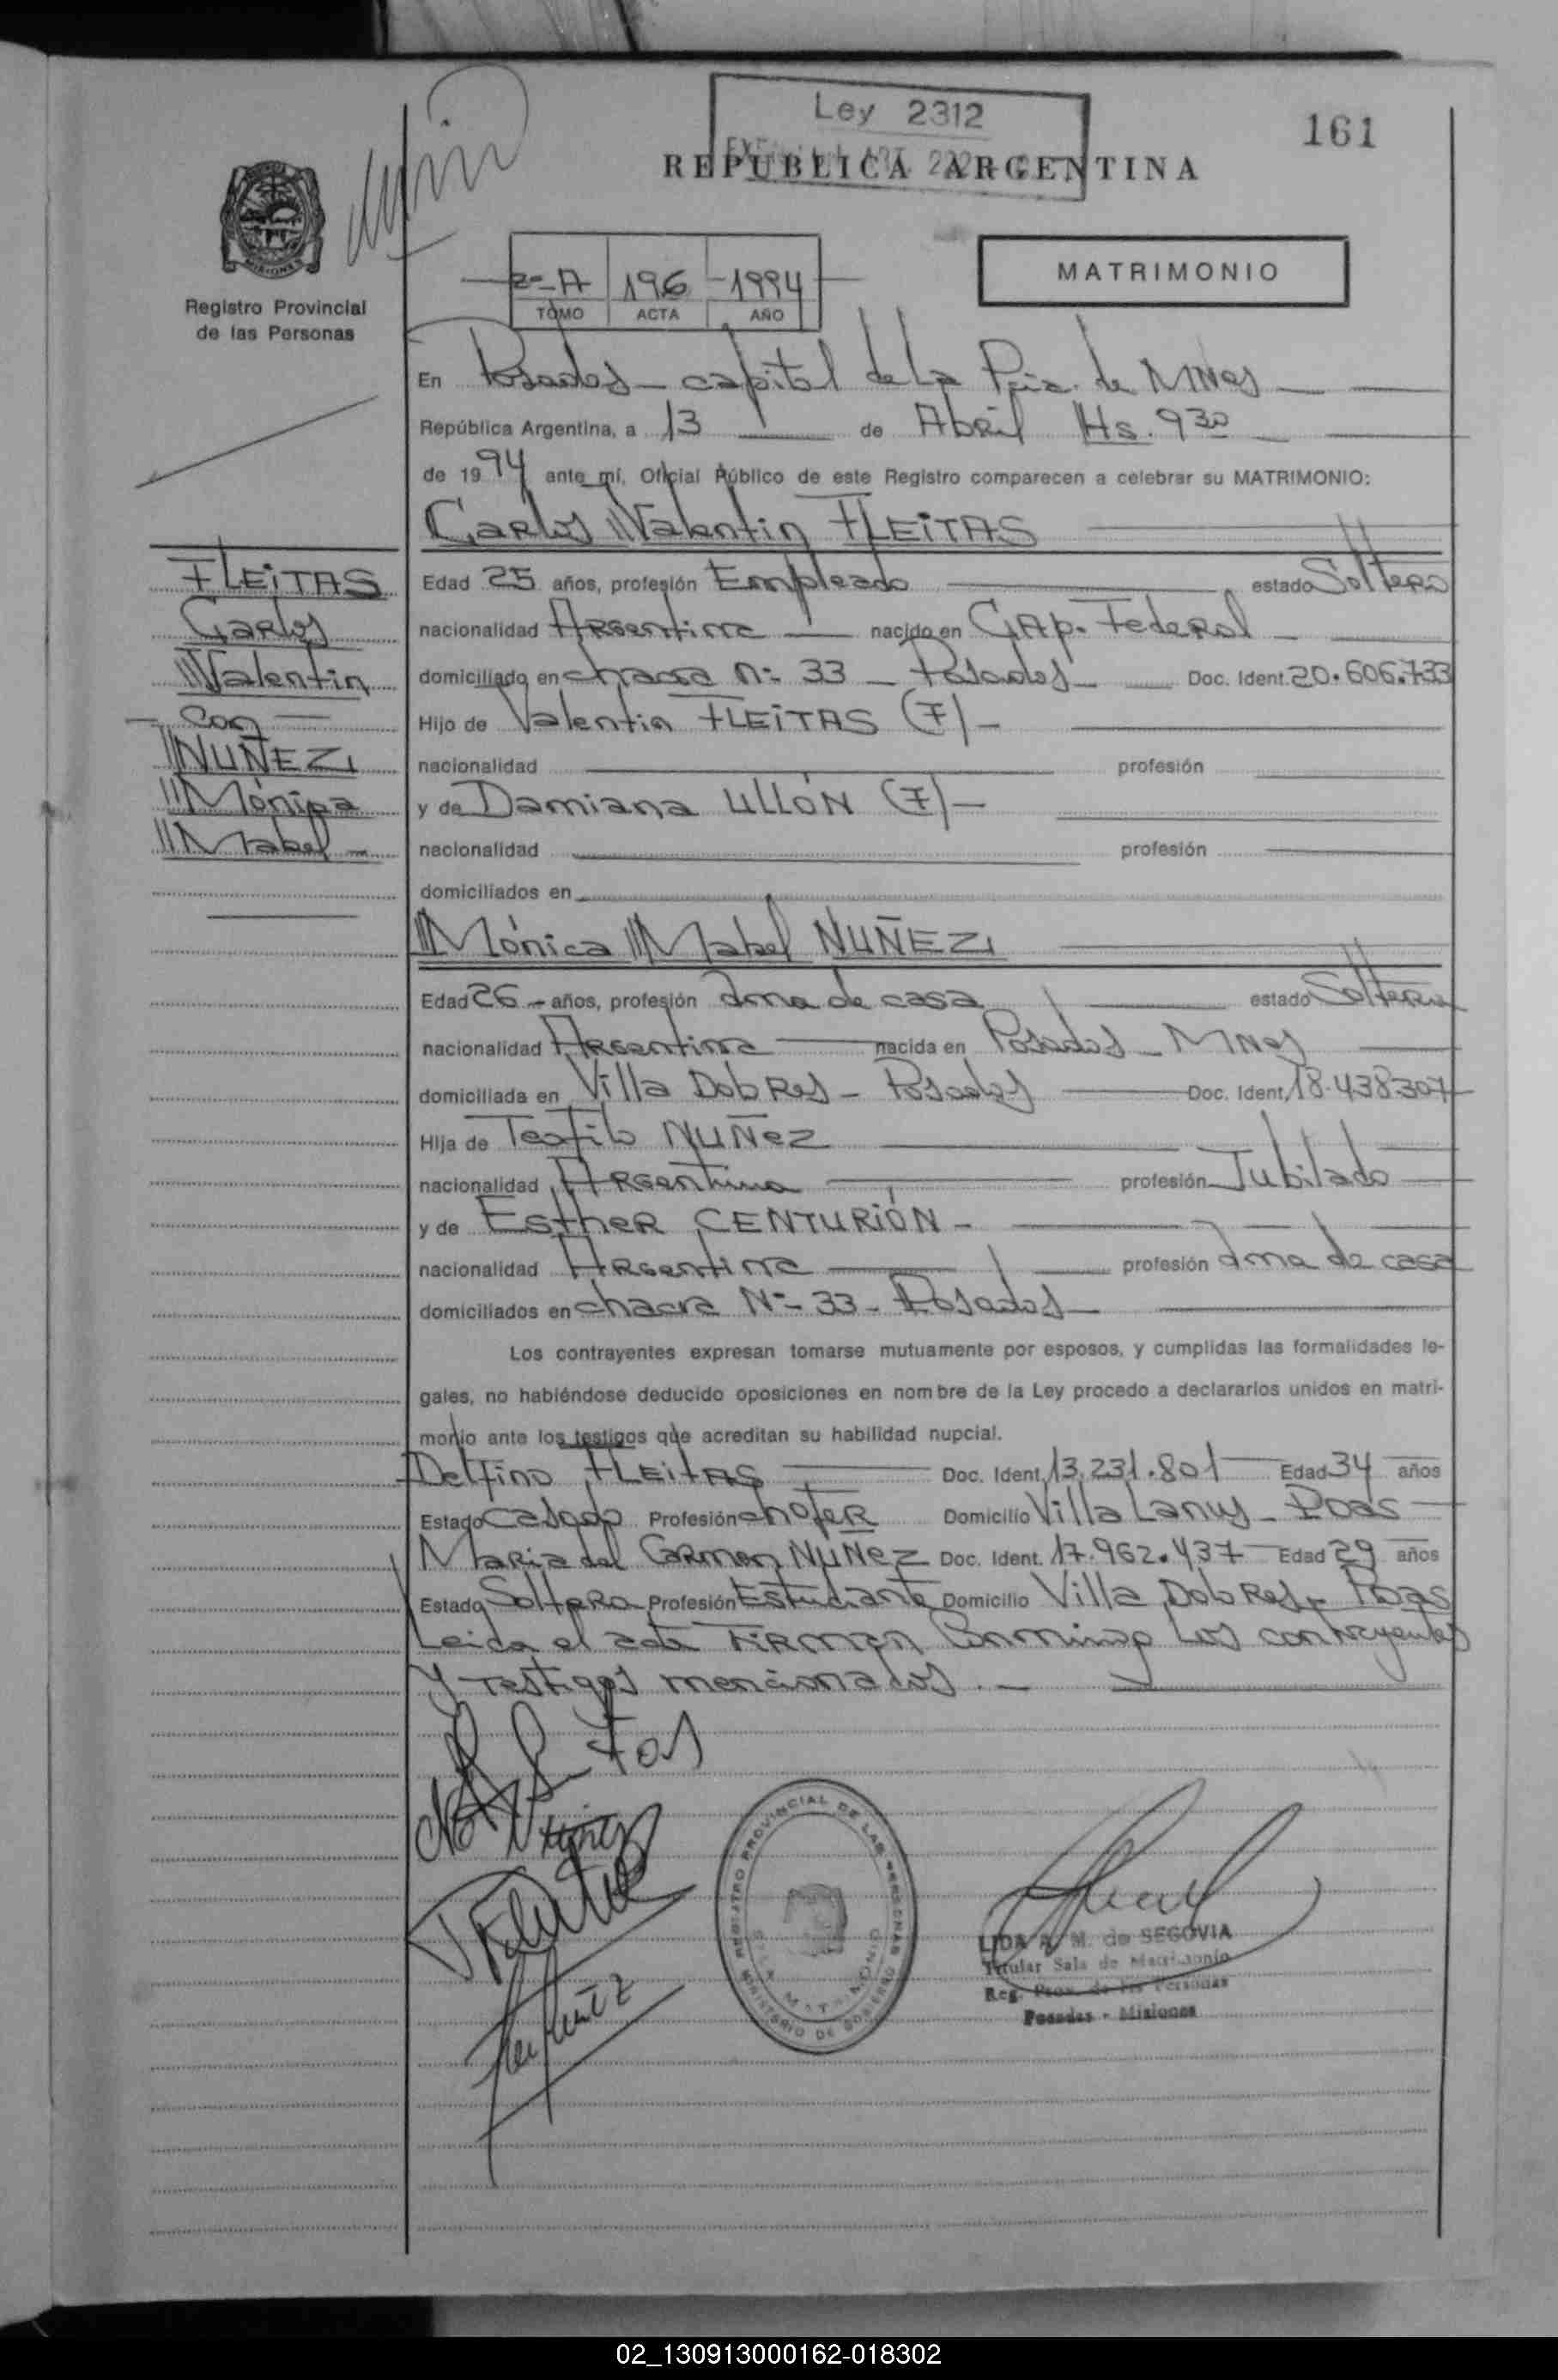 Ley 2312
161
REPUBLICA ARGENTINA
MISIONES
Registro Provincial
de las Personas
2º-A 196 1994
TOMO ACTA AÑO
MATRIMONIO
En Posadas - capital de la Pcia. de MNes
República Argentina, a 13 de Abril Hs. 930
de 1994 ante mí, Oficial Público de este Registro comparecen a celebrar su MATRIMONIO:
Carlos Valentin FLEiTAS
FLEiTAS
Carlos
Valentin
con
NUÑEZ
Mónica
Mabel -
Edad 25 años, profesión Empleado estado Soltero
nacionalidad Argentina nacido en CAp. Federal
domiciliado en chacra Nº 33 - Posadas - Doc. Ident. 20.606.733
Hijo de Valentin FLEiTAS (F) -
nacionalidad profesión
y de Damiana ULLÓN (F) -
nacionalidad profesión
domiciliados en
Mónica Mabel NUÑEZ
Edad 26 - años, profesión Ama de casa estado Soltera
nacionalidad Argentina nacida en Posadas - MNes
domiciliada en Villa Dolores - Posadas Doc. Ident. 18.438.307
Hija de Teofilo NUÑez
nacionalidad Argentina profesión Jubilado
y de EstheR CENTURIÓN -
nacionalidad Argentina profesión Ama de casa
domiciliados en chacra Nº - 33 - Posadas -
Los contrayentes expresan tomarse mutuamente por esposos, y cumplidas las formalidades le-
gales, no habiéndose deducido oposiciones en nombre de la Ley procedo a declararlos unidos en matri-
monio ante los testigos que acreditan su habilidad nupcial.
Delfino FLEitAS Doc. Ident. 13.231.801 Edad 34 años
Estado Casado Profesión chofeR Domicilio Villa Lanus - Pdas
Maria del Carmen NUÑez Doc. Ident. 17.962.437 Edad 29 años
Estado Soltera Profesión Estudiante Domicilio Villa Dolores - Pdas
Leida el acta FiRman Conmigo Los contrayentes
y testigos mencionados. -
REGISTRO PROVINCIAL DE LAS PERSONAS
MINISTERIO DE GOBIERNO
LIDA A. M. de SEGOVIA
Titular Sala de Matrimonio
Reg. Prov. de las Personas
Posadas - Misiones
02_130913000162-018302